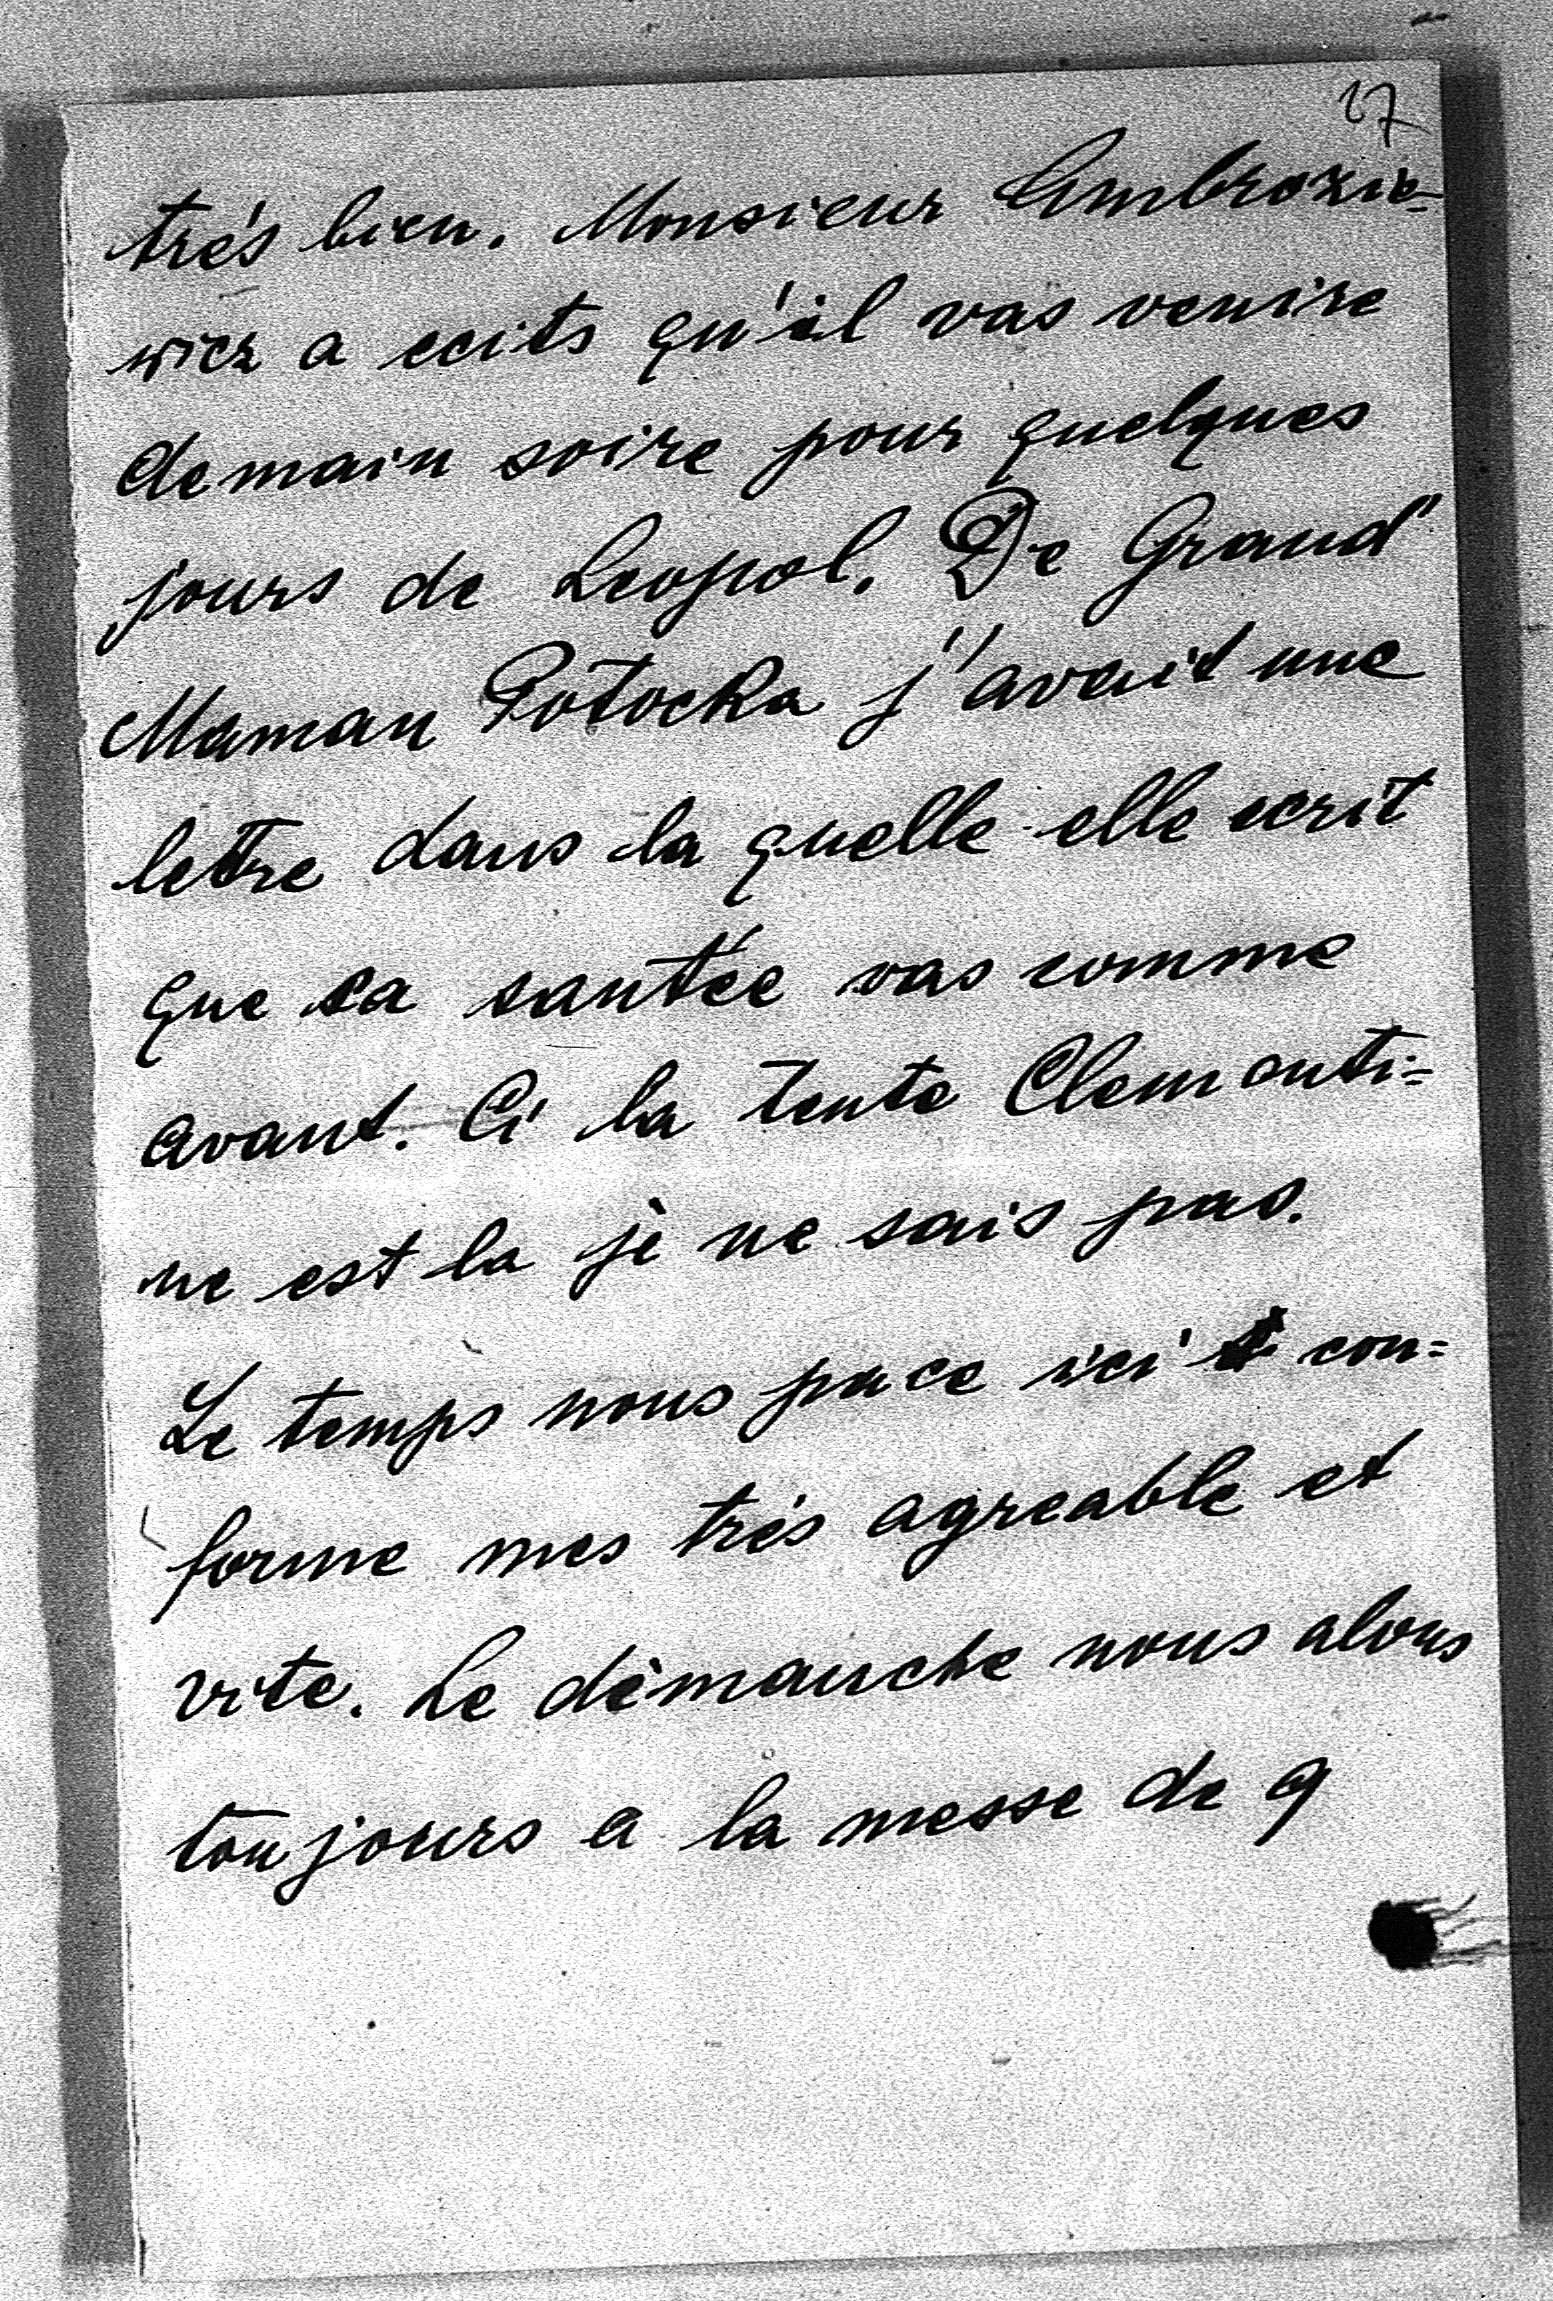 27
trés bien. Monsieur Ambrozie-
wicz a ecits qu'il vas venire
demain soire pour quelques
jours de Leopol. De Grand'
Maman Potocka j'avait une
lettre dans la quelle elle ecrit
que sa santée vas comme
avant. Ci la tente Clementi=
ne est la jè ne sais pas.
Le temps nous pace ici con=
forme mes trés agreable et
vite. Le dèmanche nous alons
toujours a la messe de 9